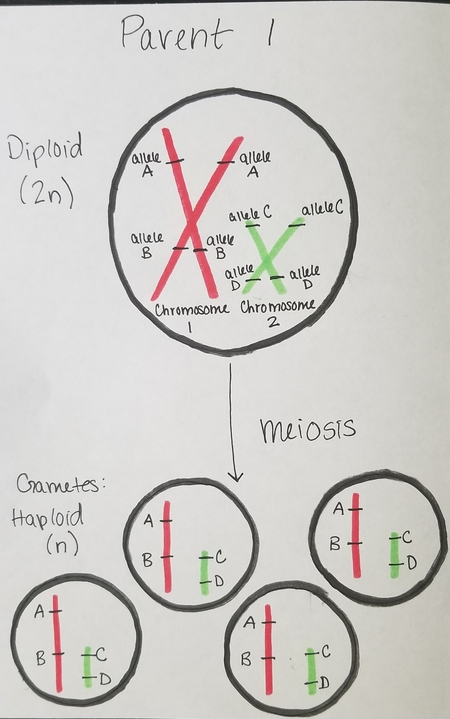 Parent 1
Diploid
(2n)
allele
A
allele
A
allele C
allele C
allele
B
allele
B
allele
D
allele
D
Chromosome
1
Chromosome
2
meiosis
Gametes:
Haploid
(n)
A
B
C
D
A
B
C
D
A
B
C
D
A
B
C
D